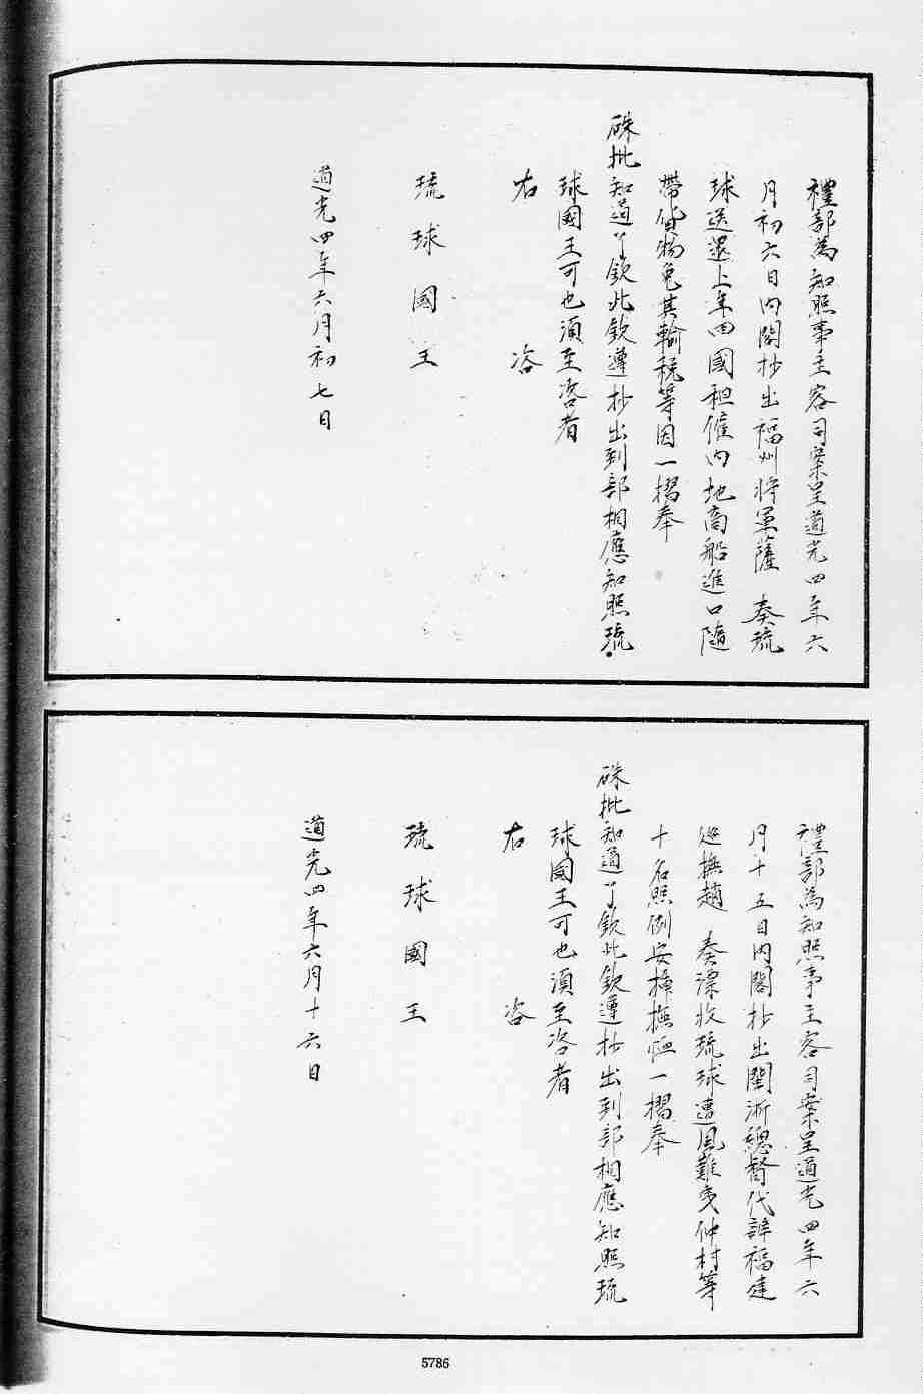 禮部為知照事主客司案呈道光四年六
月初六日内閣抄出福州将軍薩 奏琉
球送還上年回國租僱内地商船進口随
帶貨物免其輸稅等因一摺奉
硃批知道了欽此欽遵抄出到部相應知照琉
球國王可也須至咨者
右 咨
琉球國王
道光四年六月初七日
禮部為知照事主客司案呈道光四年六
月十五日内閣抄出閩浙總督代辦福建
巡撫趙 奏漂收琉球遭風難夷仲村等
十名照例安揷撫恤一摺奉
硃批知道了欽此欽遵抄出到部相應知照琉
球國王可也須至咨者
右 咨
琉球國王
道光四年六月十六日
5786